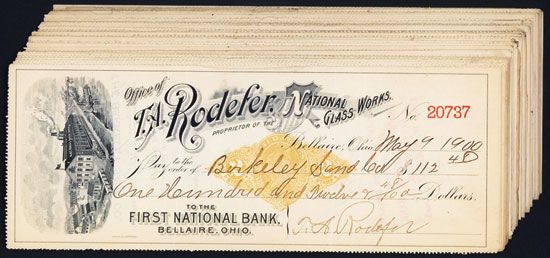 Office of
T.A. Rodefer.
PROPRIETOR OF THE NATIONAL GLASS WORKS.
No. 20737
Bellaire, Ohio, May 9 1900
Pay to the order of Berkeley Sand Co $ 112 48
One Hundred and Twelve & 48/00 Dollars.
TO THE
FIRST NATIONAL BANK,
BELLAIRE, OHIO.
T. A. Rodefer